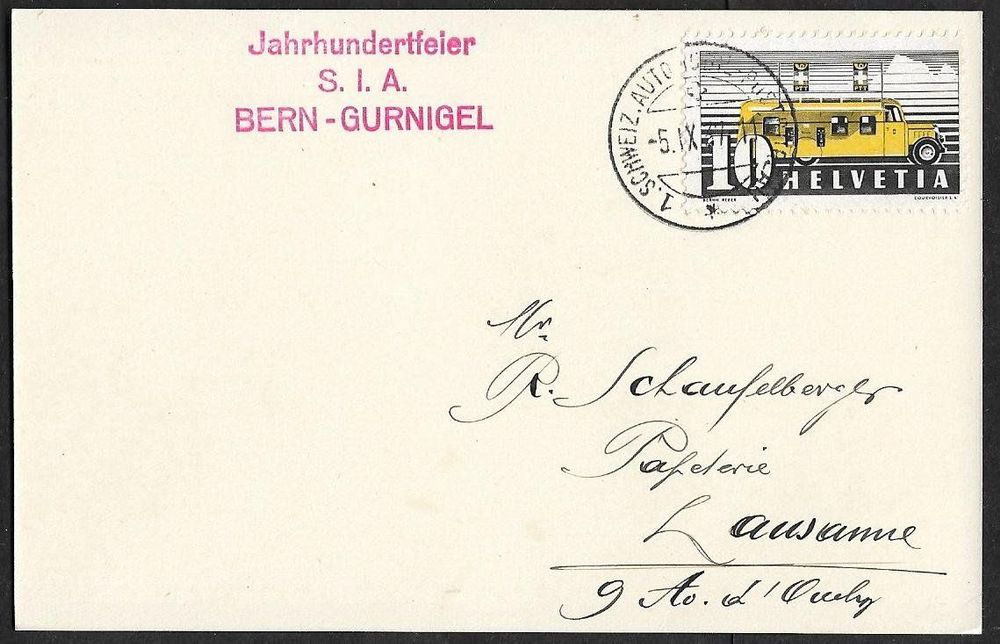 Jahrhundertfeier
S. I. A.
BERN - GURNIGEL
1. SCHWEIZ. AUTO
-5.IX
PTT PTT
10 HELVETIA
COURVOISIER S.A.
Mr.
R. Schaufelberger
Papeterie
Lausanne
9 Av. d'Ouchy